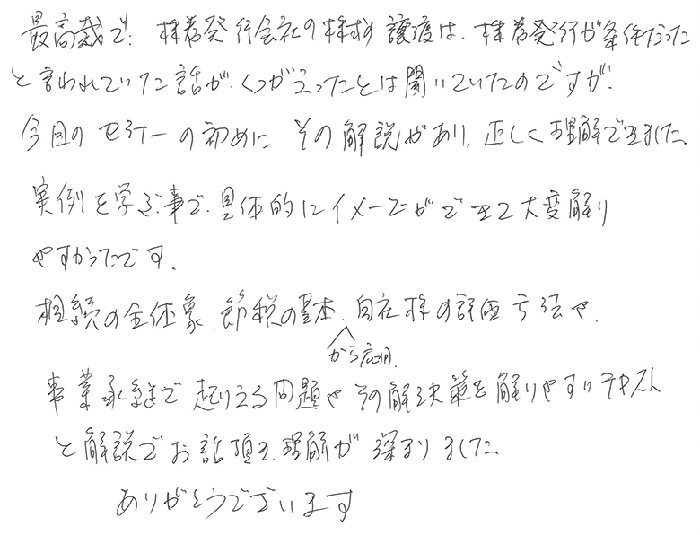 最高裁で、株券発行会社の株式の譲渡は、株券発行が条件だった
と言われていた話が、くつがえったとは聞いていたのですが、
今回のセミナーの初めに その解説があり、正しく理解できました。
実例を学ぶ事で、具体的にイメージができて大変解り
やすかったです。
相続の全体象、節税の基本、自社株の評価方法や、
から応用
事業承継で起りえる問題やその解決策を解りやすいテキスト
と解説でお話頂き、理解が深まりました。
ありがとうございます